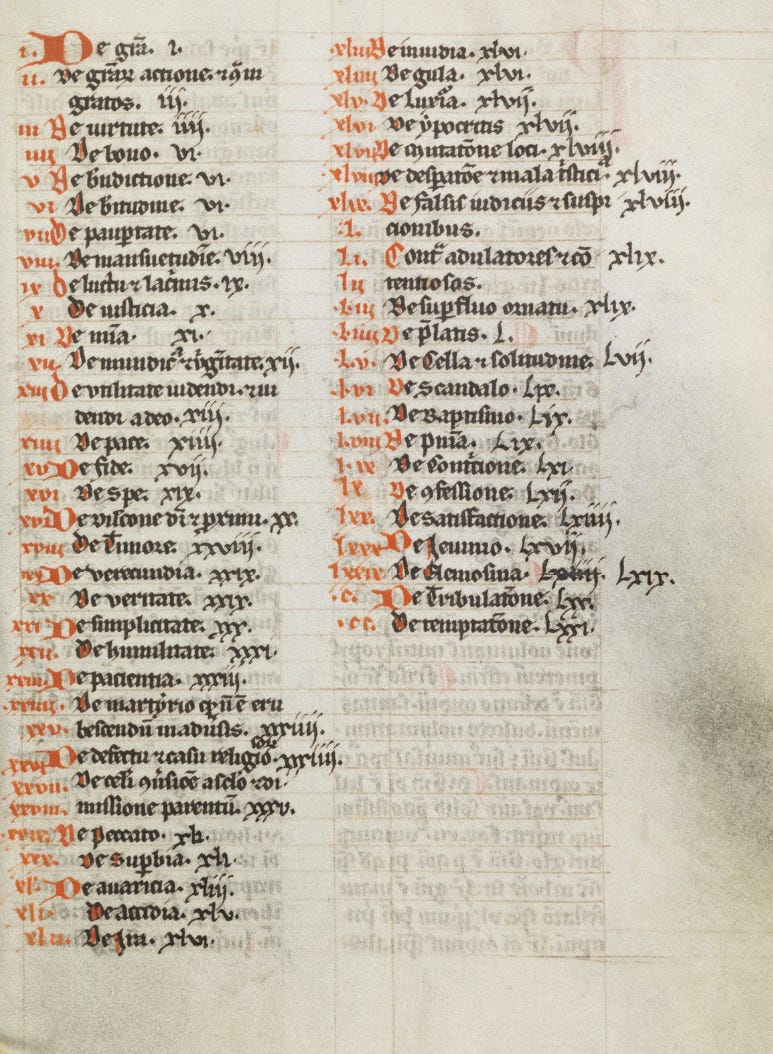 i. De gr̄a. i.
ii. De gr̄ar̄ actione. ⁊ 9̄ in
gratos. iij.
iii De uirtute. iiij.
iiii De bono. vi.
v De bn̄dictione. vi.
vi De bītudine. vi.
vii De paup̄tate. vi.
viii. De mansuetudīe. viij.
ix De luctu ⁊ lac̄mis. ix.
x De iusticia. x.
xi De mīa. xi.
xii De mundic̄ ⁊ v̄ginitate. xij.
xiii De utilitate uidendi. ⁊ ui
dendi a deo. xiij.
xiiii De pace. xiiij.
xv De fide. xvij.
xvi De spe. xix.
xvii De dilc̄one dī ⁊ proximi. xx.
xviii De Timore. xxviij.
xix De verecundia. xxix.
xx De veritate. xxix.
xxi De simplicitate. xxx.
xxii. De humilitate. xxxi.
xxiii De pacientia. xxxiij.
xxiiii. De martyrio
xxv. xxxiiij.
xxvi De defectu ⁊ casu religiōs. xxxiiij.
xxvii.
xxviii. missione parentū. xxxv.
xxix. De peccato. xl.
xxx. De sup̄bia. xli.
xl De auaricia. xliij.
xli. De accidia. xlv.
xlii. De Jra. xlvi.
xliii De inuidia. xlvi.
xliiii De gula. xlvi.
xlv. De Luxīa. xlvij.
xlvi De ypocritis xlvij.
xlvii De mutatōne loci. xlviij.
xlviii De desp̄atōe ⁊ mala t̄sticia xlviij.
xlix. De falsis iudiciis ⁊ suspi xlviij.
l. cionibus.
li. Cont̄ adulatores ⁊ cō xlix.
lii tentiosos.
liii De sup̄fluo ornatu. xlix.
liiii De p̄latis. L.
lv. De Cella ⁊ solitudine. Lvij.
lvi De scandalo. Lix.
lvii. De Baptismo. Lix.
lviii De pn̄ia. Lix.
lix De Cont̄icione. Lxi.
lx De 9fessione. Lxij.
lxx. De satisfactione. Lxiiij.
lxxx De Jeiunio. Lxvij.
lxxix De Elemosina. Lxiiij. Lxix.
.c. De Tribulatōne. Lxx.
.cc. De temptatōne. Lxxi.